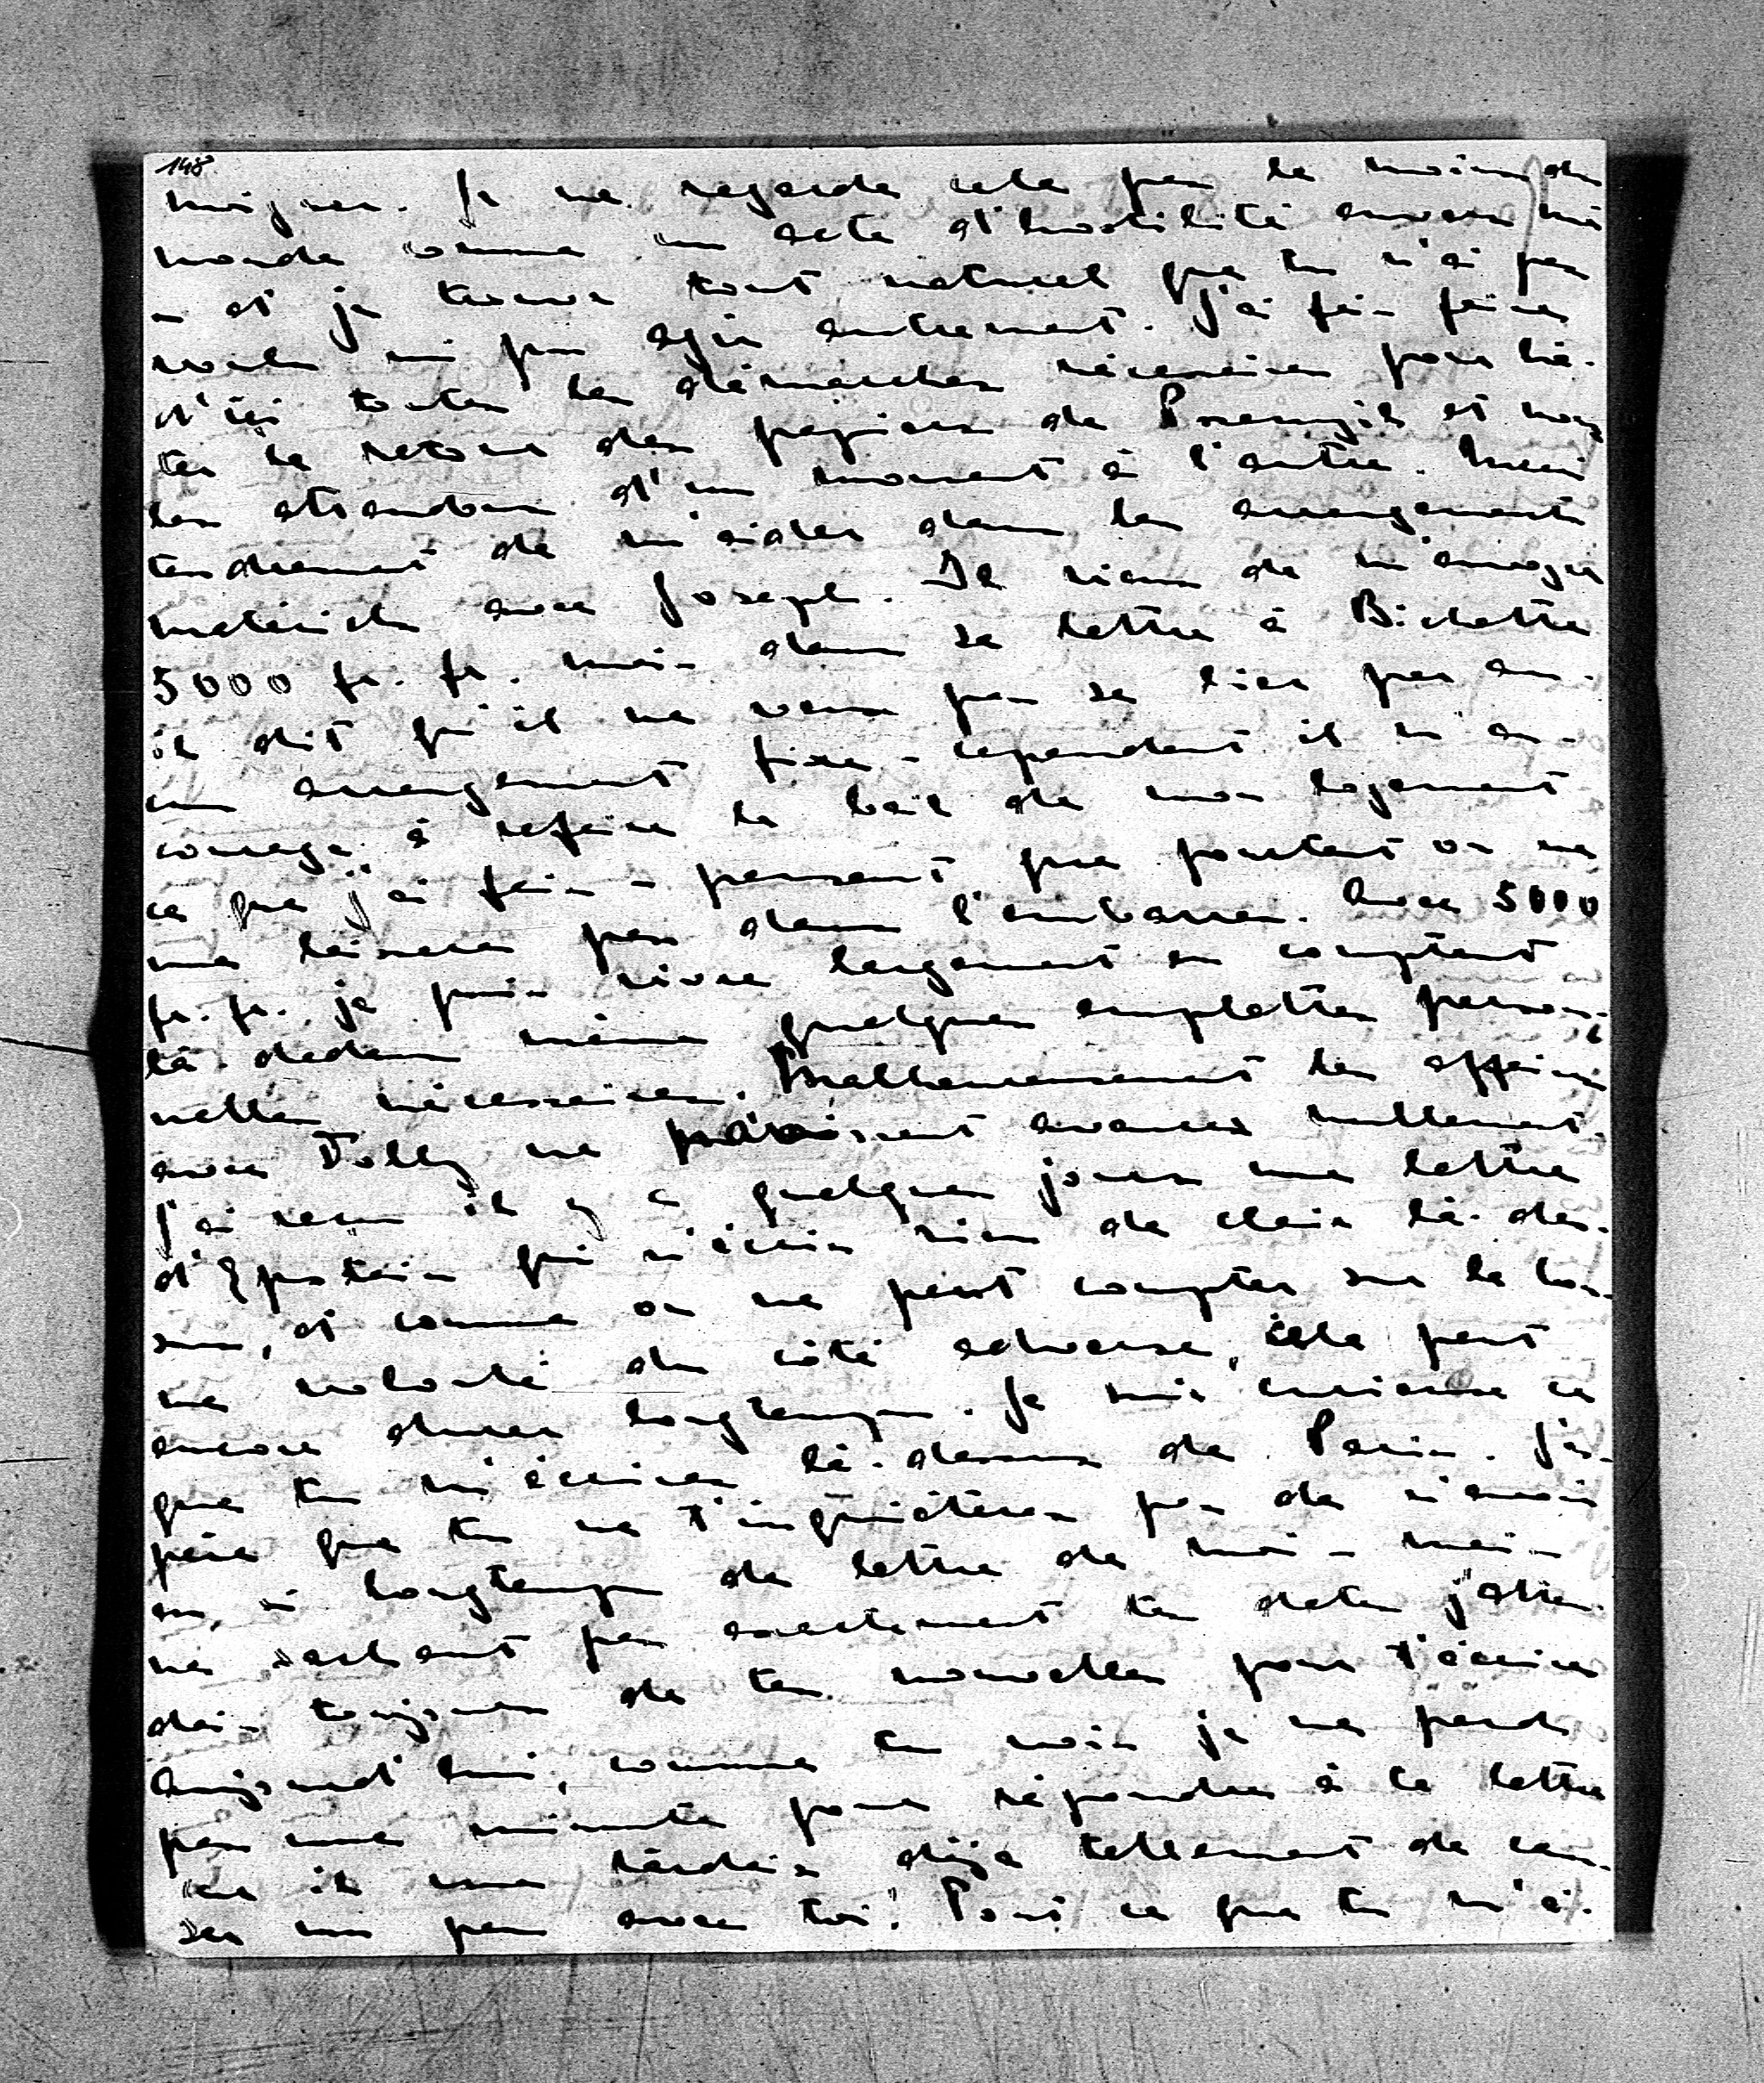 148
moigner. Je ne regarde cela pas le moins du
monde comme un acte d'hostilité envers moi
- et je trouve tout naturel que tu n'ai pas
voulu ni pu agir autrement. J'ai fais faire
d'ici toutes les démarches nécessaires pour hâ-
ter le retour des papiers de Przemysl et nous
les attendons d'un moment à l'autre. Merci
tendrement de m'aider dans les arrangements
matériels avec Joseph. Il vient de m'envoyer
5000 fr. fr. mais dans sa lettre à Bichette
il dit qu'il ne veux pas se lier par au-
un arrangement fixe - cependant il m'en-
courage à refaire le bail de mon logement
ce que j'ai fais - pensant que pourtant on ne
me laissera pas dans l'embarras. Avec 5000
fr. fr. je puis vivre largement en comptant
là-dedans même quelques emplettes person-
nelles nécessaires. Malheureusement les affaires
avec Tolly ne paraissent avancer nullement.
J'ai reçu il y a quelques jours une lettre
d'Epstein qui n'écris rien de clair là-des-
sus, et comme on ne peut compter sur la bon-
ne volonté du côté adverse, cela peut
encore durer longtemps. Je suis curieuse ce
que tu m'écriras là-dessus de Paris. J'es-
père que tu ne t'inquiéteras pas de n'avoir
eu si longtemps de lettre de moi - mais
ne sachant pas exactement tes dates j'atten-
dais toujours de tes nouvelles pour t'écrire
Aujourd'hui, comme tu vois je ne perds
pas une minute pour répondre à ta lettre
car il me tardais déjà tellement de cau-
ser un peu avec toi! Tout ce que tu m'é-